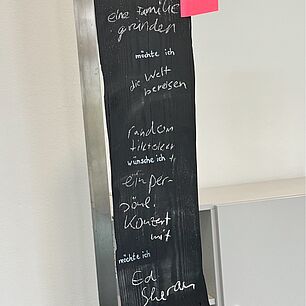 eine Familie
gründen
möchte ich
die Welt
bereisen
random
tiktokern
wünsche ich
ein per-
sönl.
Konzert
mit
möchte ich
Ed
Sheran